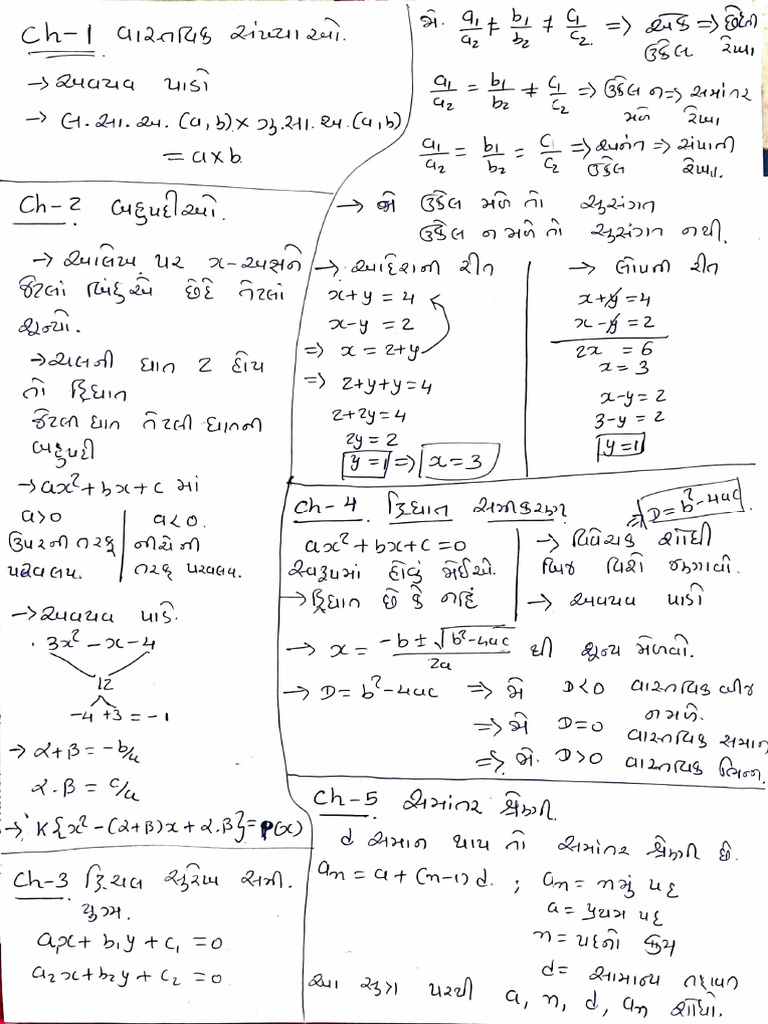 Ch-1 વાસ્તવિક સંખ્યાઓ.
→ અવયવ પાડો
→ લ.સા.અ. (a,b) × ગુ.સા.અ. (a,b)
= a×b
Ch-2 બહુપદીઓ.
→ આલેખ પર x-અક્ષને
જેટલાં બિંદુએ છેદે તેટલાં
શૂન્યો.
→ ચલની ઘાત 2 હોય
તો દ્વિઘાત
જેટલી ઘાત તેટલી ઘાતની
બહુપદી
→ ax²+bx+c માં
a>0
ઉપરની તરફ
પરવલય.
a<0.
નીચેની
તરફ પરવલય.
→ અવયવ પાડો.
3x²-x-4
12
-4 +3 = -1
→ α+β = -b/a
α.β = c/a
→ K{x²-(α+β)x+α.β} = P(x)
Ch-3 દ્વિચલ સુરેખ સમી.
યુગ્મ.
a₁x + b₁y + c₁ = 0
a₂x + b₂y + c₂ = 0
જો. a₁/a₂ ≠ b₁/b₂ ≠ c₁/c₂ ⇒ એક ઉકેલ ⇒ છેદતી રેખા
a₁/a₂ = b₁/b₂ ≠ c₁/c₂ ⇒ ઉકેલ ન મળે ⇒ સમાંતર રેખા
a₁/a₂ = b₁/b₂ = c₁/c₂ ⇒ અનંત ઉકેલ ⇒ સંપાતી રેખા.
→ જો ઉકેલ મળે તો સુસંગત
ઉકેલ ન મળે તો સુસંગત નથી.
→ આદેશની રીત
x+y = 4
x-y = 2
⇒ x = 2+y
⇒ 2+y+y=4
2+2y=4
2y = 2
y=1 ⇒ x=3
→ લોપની રીત
x+y=4
x-y=2
2x = 6
x = 3
x-y=2
3-y=2
y=1
Ch-4 દ્વિઘાત સમીકરણ ⇒ D=b²-4ac
ax²+bx+c=0
સ્વરૂપમાં હોવું જોઈએ.
→ દ્વિઘાત છે કે નહિં
→ વિવેચક શોધી
બિજ વિશે જણાવો.
→ અવયવ પાડો
→ x = -b±√b²-4ac / 2a થી શૂન્ય મેળવો.
→ D=b²-4ac ⇒ જો D<0 વાસ્તવિક બીજ
ન મળે.
⇒ જો D=0 વાસ્તવિક સમાન
⇒ જો. D>0 વાસ્તવિક ભિન્ન.
Ch-5 સમાંતર શ્રેણી.
d સમાન થાય તો સમાંતર શ્રેણી છે.
an = a+(n-1)d. ; an = nમું પદ
a = પ્રથમ પદ
n = પદનો ક્રમ
d = સામાન્ય તફાવત
આ સૂત્ર પરથી a, n, d, an શોધો.